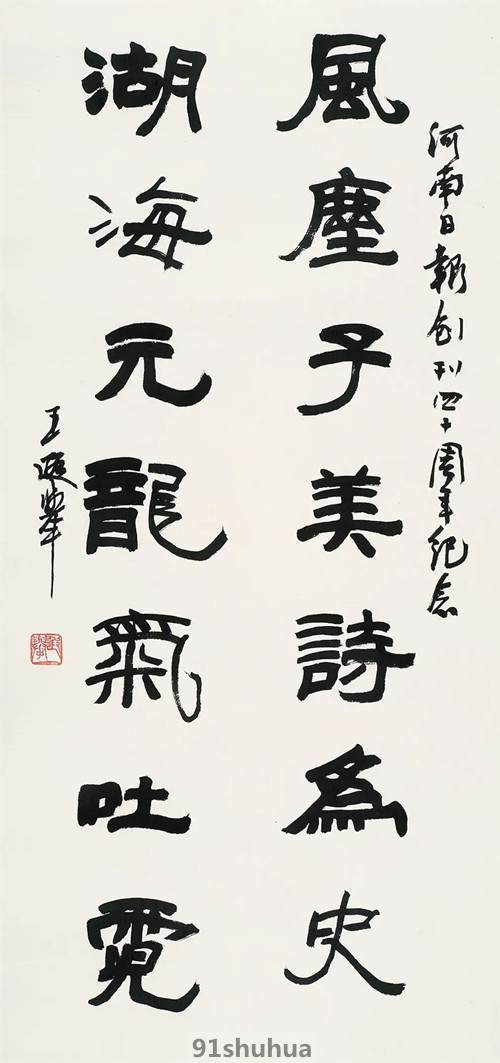 河南日報創刊四十周年纪念
風塵子美詩為史
湖海元龍氣吐霓
王遐舉
91shuhua